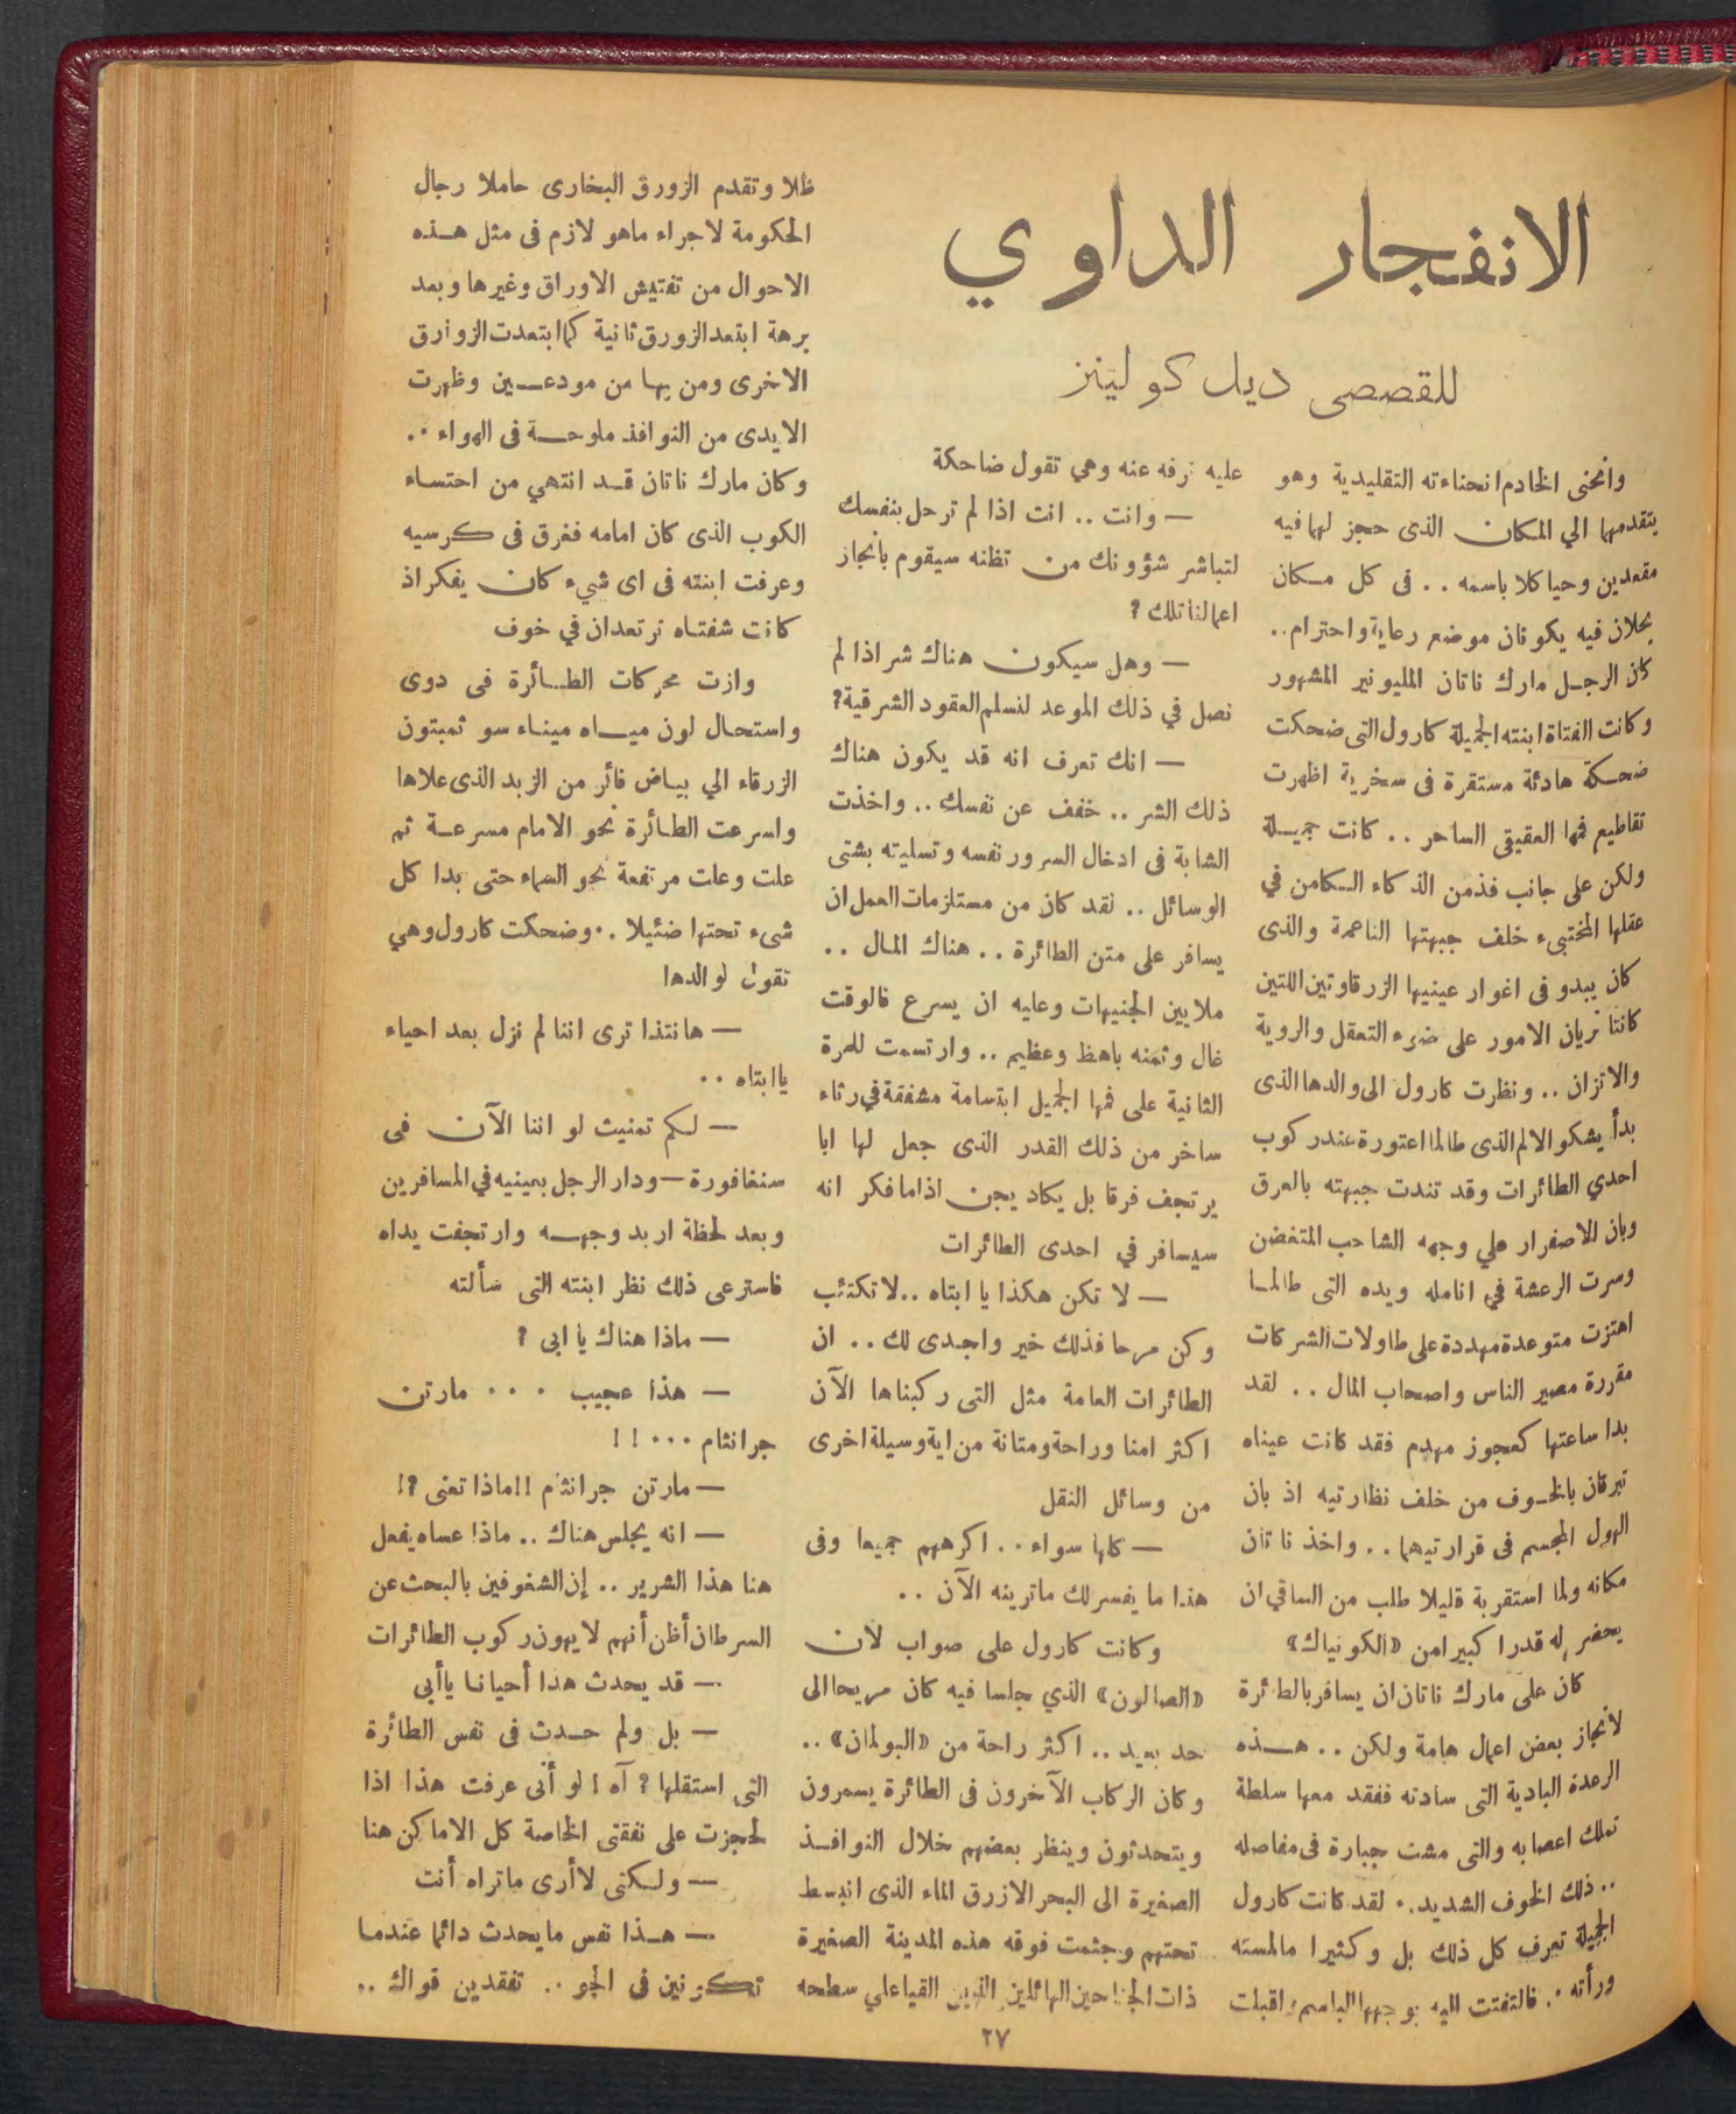 الانفجار الداوي
للقصصى ديل كولينز
وانحنى الخادم انحناءته التقليدية وهو
يتقدمهما الي المكان الذى حجز لهما فيه
مقعدين وحيا كلا باسمه . . فى كل مكان
يحلان فيه يكونان موضع رعاية واحترام..
كان الرجل مارك ناتان المليونير المشهور
وكانت الفتاة ابنته الجميلة كارول التى ضحكت
ضحكة هادئة مستقرة فى سخرية اظهرت
تقاطيع فمها العقيقى الساحر . . كانت جميلة
ولكن على جانب فذمن الذكاء الكامن في
عقلها المختبىء خلف جبهتها الناعمة والذى
كان يبدو فى اغوار عينيها الزرقاوتين اللتين
كانتا تريان الامور على ضوء التعقل والروية
والاتزان .. ونظرت كارول الى والدها الذى
بدأ يشكو الالم الذى طالما اعتورة عند ركوب
احدي الطائرات وقد تندت جبهته بالعرق
وبان للاصفرار علي وجهه الشاحب المتغضن
وسرت الرعشة في انامله ويده التى طالما
اهتزت متوعدة مهددة على طاولات الشركات
مقررة مصير الناس واصحاب المال . . لقد
بدا ساعتها كعجوز مهدم فقد كانت عيناه
تبرقان بالخوف من خلف نظارتيه اذ بان
الهول المجسم فى قرارتيهما . . واخذ ناتان
مكانه ولما استقربة قليلا طلب من الساقي ان
يحضر له قدرا كبيرا من «الكونياك»
كان على مارك ناتان ان يسافر بالطائرة
لانجاز بعض اعمال هامة ولكن . . هذه
الرعدة البادية التى سادته ففقد معها سلطة
تملك اعصابه والتى مشت جبارة فى مفاصله
.. ذلك الخوف الشديد . . لقد كانت كارول
الجميلة تعرف كل ذلك بل وكثيرا مالمسته
ورأته . . فالتفتت اليه بوجهها الباسم واقبلت
عليه ترفه عنه وهي تقول ضاحكة
— وانت .. انت اذا لم ترحل بنفسك
لتباشر شؤونك من تظنه سيقوم بانجاز
اعمالنا تلك ؟
— وهل سيكون هناك شر اذا لم
نصل في ذلك الموعد لنسلم العقود الشرقية؟
— انك تعرف انه قد يكون هناك
ذلك الشر .. خفف عن نفسك .. واخذت
الشابة فى ادخال السرور نفسه وتسليته بشتى
الوسائل .. لقد كان من مستلزمات العمل ان
يسافر على متن الطائرة . . هناك المال ..
ملايين الجنيهات وعليه ان يسرع فالوقت
غال وثمنه باهظ وعظيم .. وارتسمت للمرة
الثانية على فمها الجميل ابتسامة مشفقة في رثاء
ساخر من ذلك القدر الذى جعل لها ابا
يرتجف فرقا بل يكاد يجن اذا ما فكر انه
سيسافر في احدى الطائرات
— لا تكن هكذا يا ابتاه ..لا تكتئب
وكن مرحا فذلك خير واجدى لك .. ان
الطائرات العامة مثل التى ركبناها الآن
اكثر امنا وراحة ومتانة من اية وسيلة اخرى
من وسائل النقل
— كلها سواء . . اكرههم جميعا وفى
هذا ما يفسر لك ماترينه الآن ..
وكانت كارول على صواب لان
«الصالون» الذي جلسا فيه كان مريحا الى
حد بعيد .. اكثر راحة من «البولمان» ..
وكان الركاب الآخرون فى الطائرة يسمرون
ويتحدثون وينظر بعضهم خلال النوافذ
الصغيرة الى البحر الازرق الماء الذى انبسط
تحتهم وجثمت فوقه هذه المدينة الصغيرة
ذات الجناحين الهائلين الذين القيا علي سطحه
ظلا وتقدم الزورق البخارى حاملا رجال
الحكومة لاجراء ماهو لازم فى مثل هذه
الاحوال من تفتيش الاوراق وغيرها وبعد
برهة ابتعد الزورق ثانية كما ابتعدت الزوارق
الاخرى ومن بها من مودعين وظهرت
الايدى من النوافذ ملوحة فى الهواء ..
وكان مارك ناتان قد انتهي من احتساء
الكوب الذى كان امامه فغرق فى كرسيه
وعرفت ابنته فى اى شيء كان يفكر اذ
كانت شفتاه ترتعدان في خوف
وازت محركات الطائرة فى دوى
واستحال لون مياه ميناء سو ثمبتون
الزرقاء الي بياض فائر من الزبد الذى علاها
واسرعت الطائرة نحو الامام مسرعة ثم
علت وعلت مرتفعة نحو السماء حتى بدا كل
شىء تحتها ضئيلا . . وضحكت كارول وهي
تقول لوالدها
— هانتذا ترى اننا لم نزل بعد احياء
يا ابتاه ..
— لكم تمنيت لو اننا الآن فى
سنغافورة — ودار الرجل بعينيه في المسافرين
وبعد لحظة اربد وجهه وارتجفت يداه
فاسترعى ذلك نظر ابنته التى سألته
— ماذا هناك يا ابى ؟
— هذا عجيب . . . مارتن
جرانثام . . . ! !
— مارتن جرانثام !! ماذا تعنى ؟!
— انه يجلس هناك .. ماذا عساه يفعل
هنا هذا الشرير .. إن الشغوفين بالبحث عن
السرطان أظن أنهم لا يهون ركوب الطائرات
— قد يحدث هذا أحيانا يا أبى
— بل ولم حدث فى نفس الطائرة
التى استقلها ؟ آه ! لو أنى عرفت هذا اذا
لحجزت على نفقتى الخاصة كل الاماكن هنا
— ولكنى لا أرى ماتراه أنت
— هذا نفس مايحدث دائما عندما
تكونين فى الجو .. تفقدين قواك ..
٢٧